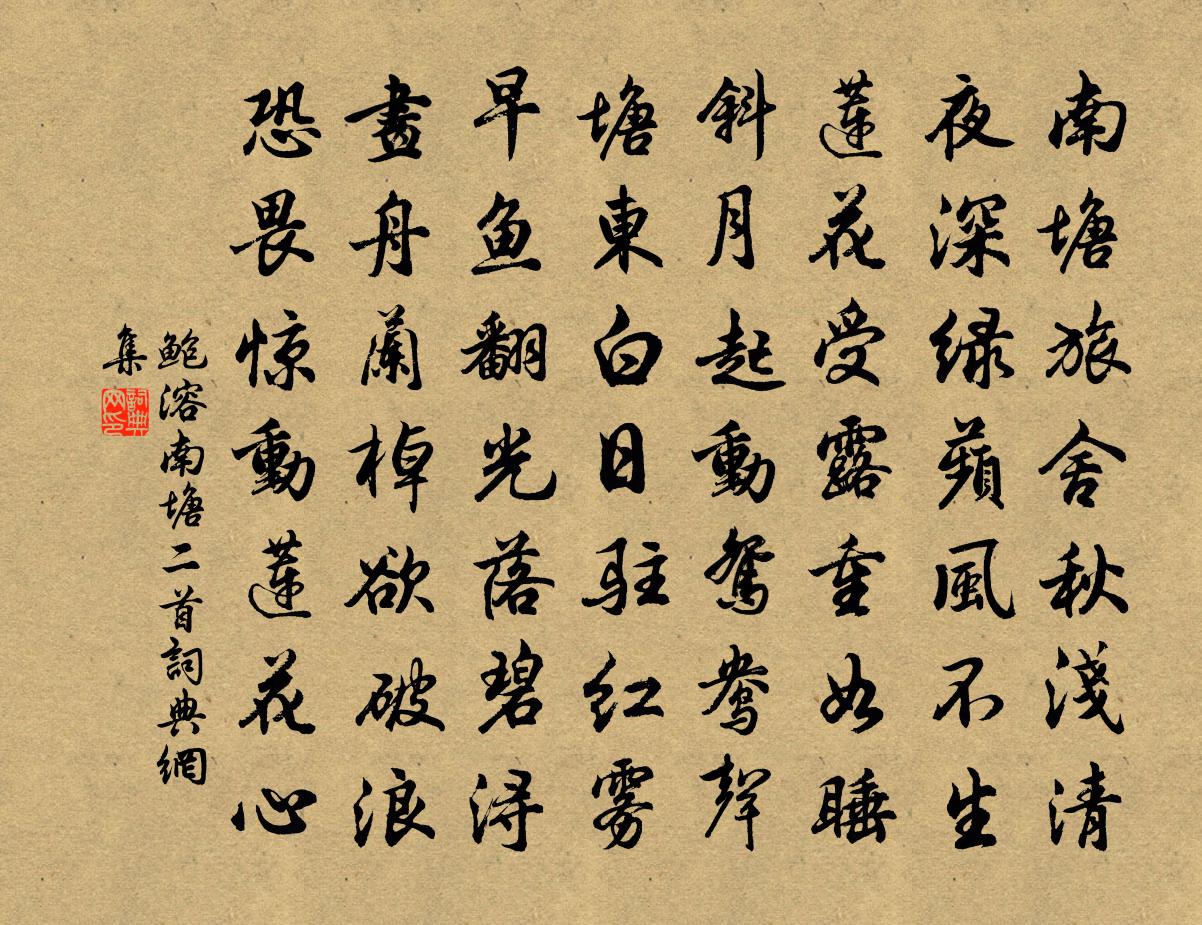 南塘旅舍秋淺清
夜深绿蘋風不生
蓮花受露重如睡
斜月起動鴛鴦聲
塘東白日駐红雾
早鱼翻光落碧潯
畫舟蘭棹欲破浪
恐畏惊動蓮花心
鲍溶南塘二首詞典網
集
詞典
网印